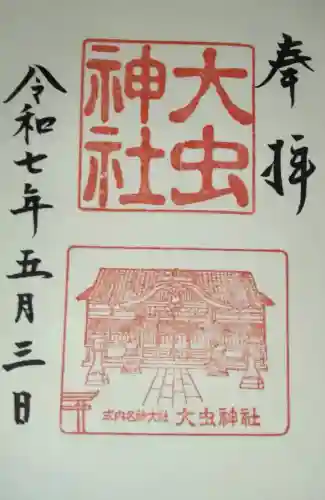 奉拝
大虫
神社
令和七年五月三日
式内名神大社 大虫神社